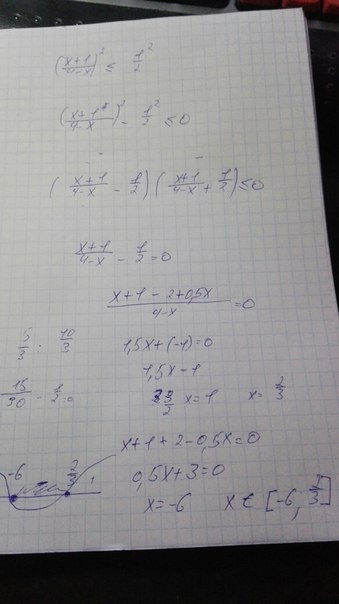 ((x+1)/(4-x))² ≤ 1/2²
((x+1)/(4-x))² - 1/2² ≤ 0
((x+1)/(4-x) - 1/2)((x+1)/(4-x) + 1/2) ≤ 0
(x+1)/(4-x) - 1/2 = 0
(x+1-2+0,5x)/(4-x) = 0
5/3 : 10/3
1,5x+(-1)=0
15/30 - 1/2 = 0
1,5x=1
3/2 x=1
x=2/3
x+1+2-0,5x=0
-6 2/3 +
0,5x+3=0
x=-6
x∈[-6, 2/3]